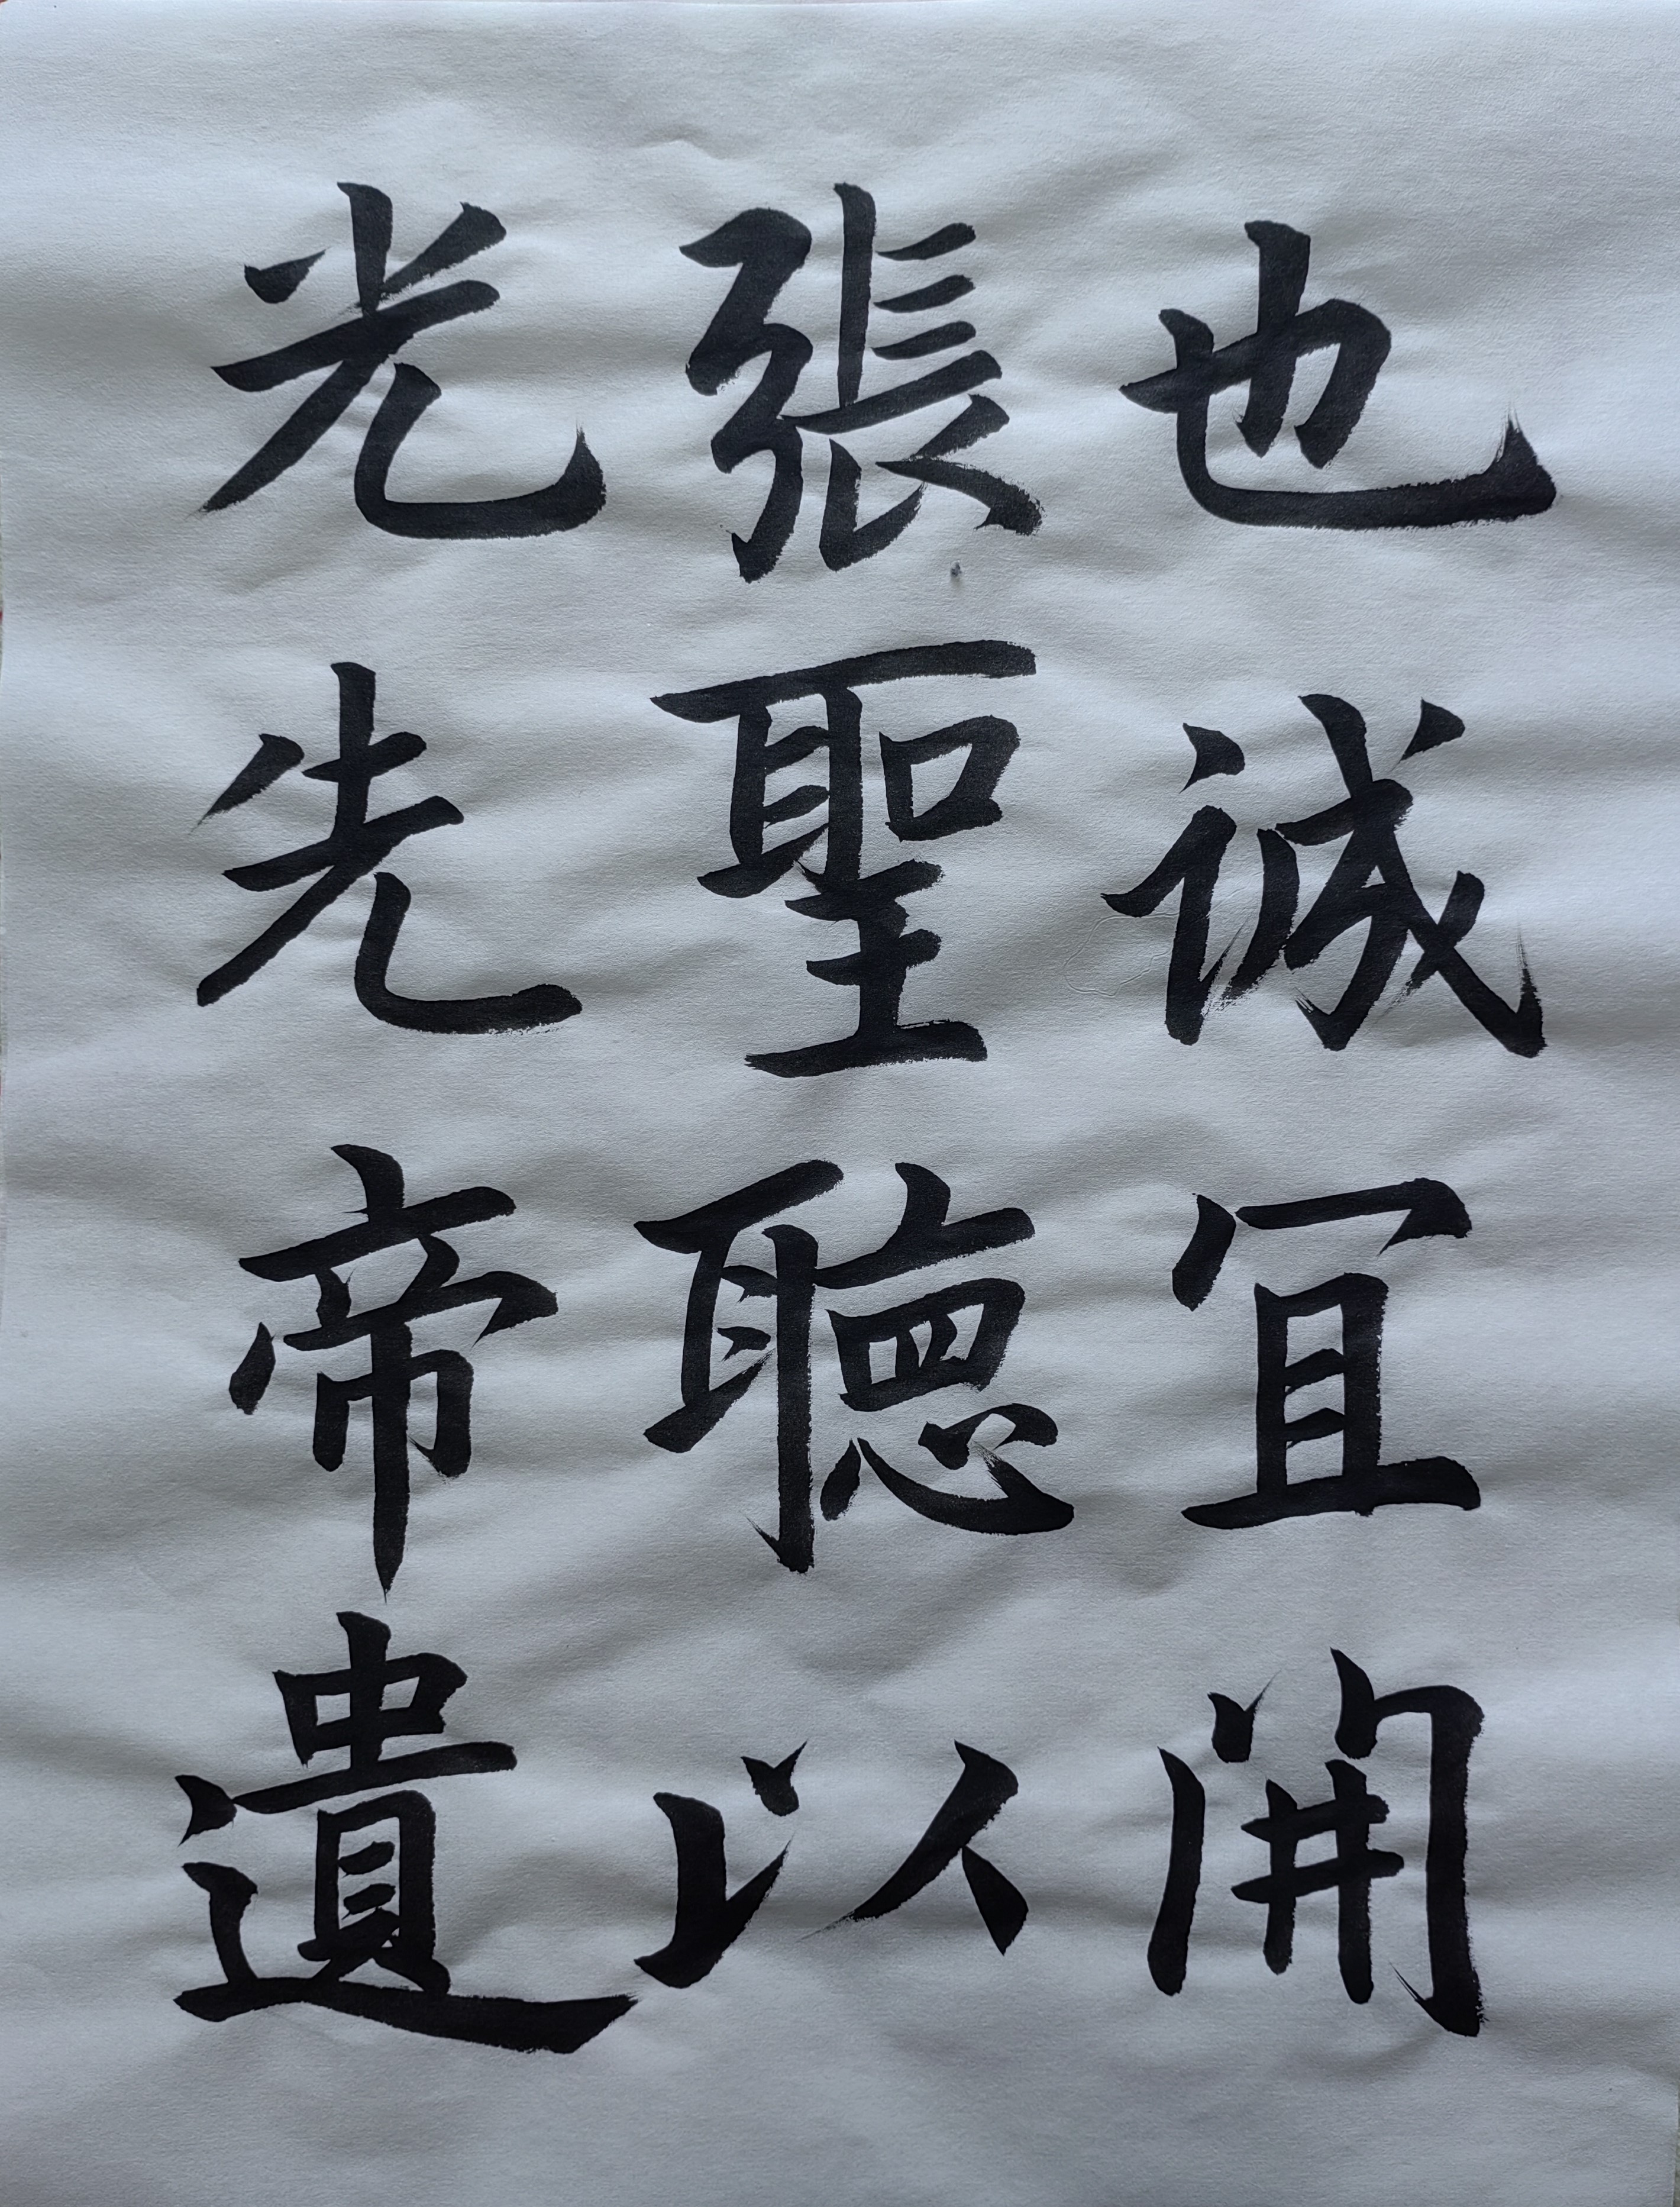 也誠宜開
張聖聽以
光先帝遺